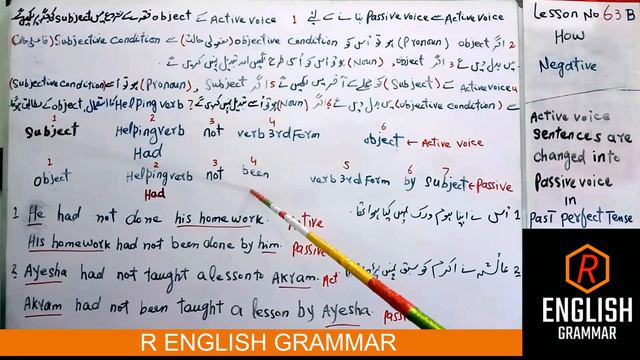 Active voice سے Passive voice بنانے کے لئے 1 Active voice کے object
2 اگر object (Pronoun) ہو تو اس کو objective condition (مفعولی حالت) سے Subjective Condition
میں بدل دیں گے 3 اگر object (Noun) ہو تو اس کو اسی طرح
4 Active voice کے (Subject) کو جملے کے آخر میں لکھیں گے 5 اگر Subject (Pronoun) ہو تو اسے (Subjective condition)
سے (objective condition) میں بدل دیں گے 6 اگر (Noun) ہو تو 7 Helping verb کا استعمال object کے مطابق
1 2 3 4 6
Subject Helping verb not verb 3rd Form object ← Active voice
Had
1 2 3 4 5 6 7
Object Helping verb not been verb 3rd Form by Subject ← Passive
Had
1 He had not done his homework. Active 1 اُس نے اپنا ہوم ورک نہیں کیا ہوا تھا۔
His homework had not been done by him. Passive
2 Ayesha had not taught a lesson to Akram. Act 2 عائشہ نے اکرم کو سبق نہیں
Akram had not been taught a lesson by Ayesha. Pass
Lesson No 63 B
How
Negative
Active voice
sentences are
changed into
Passive voice
in
Past perfect Tense
R
ENGLISH
GRAMMAR
R ENGLISH GRAMMAR